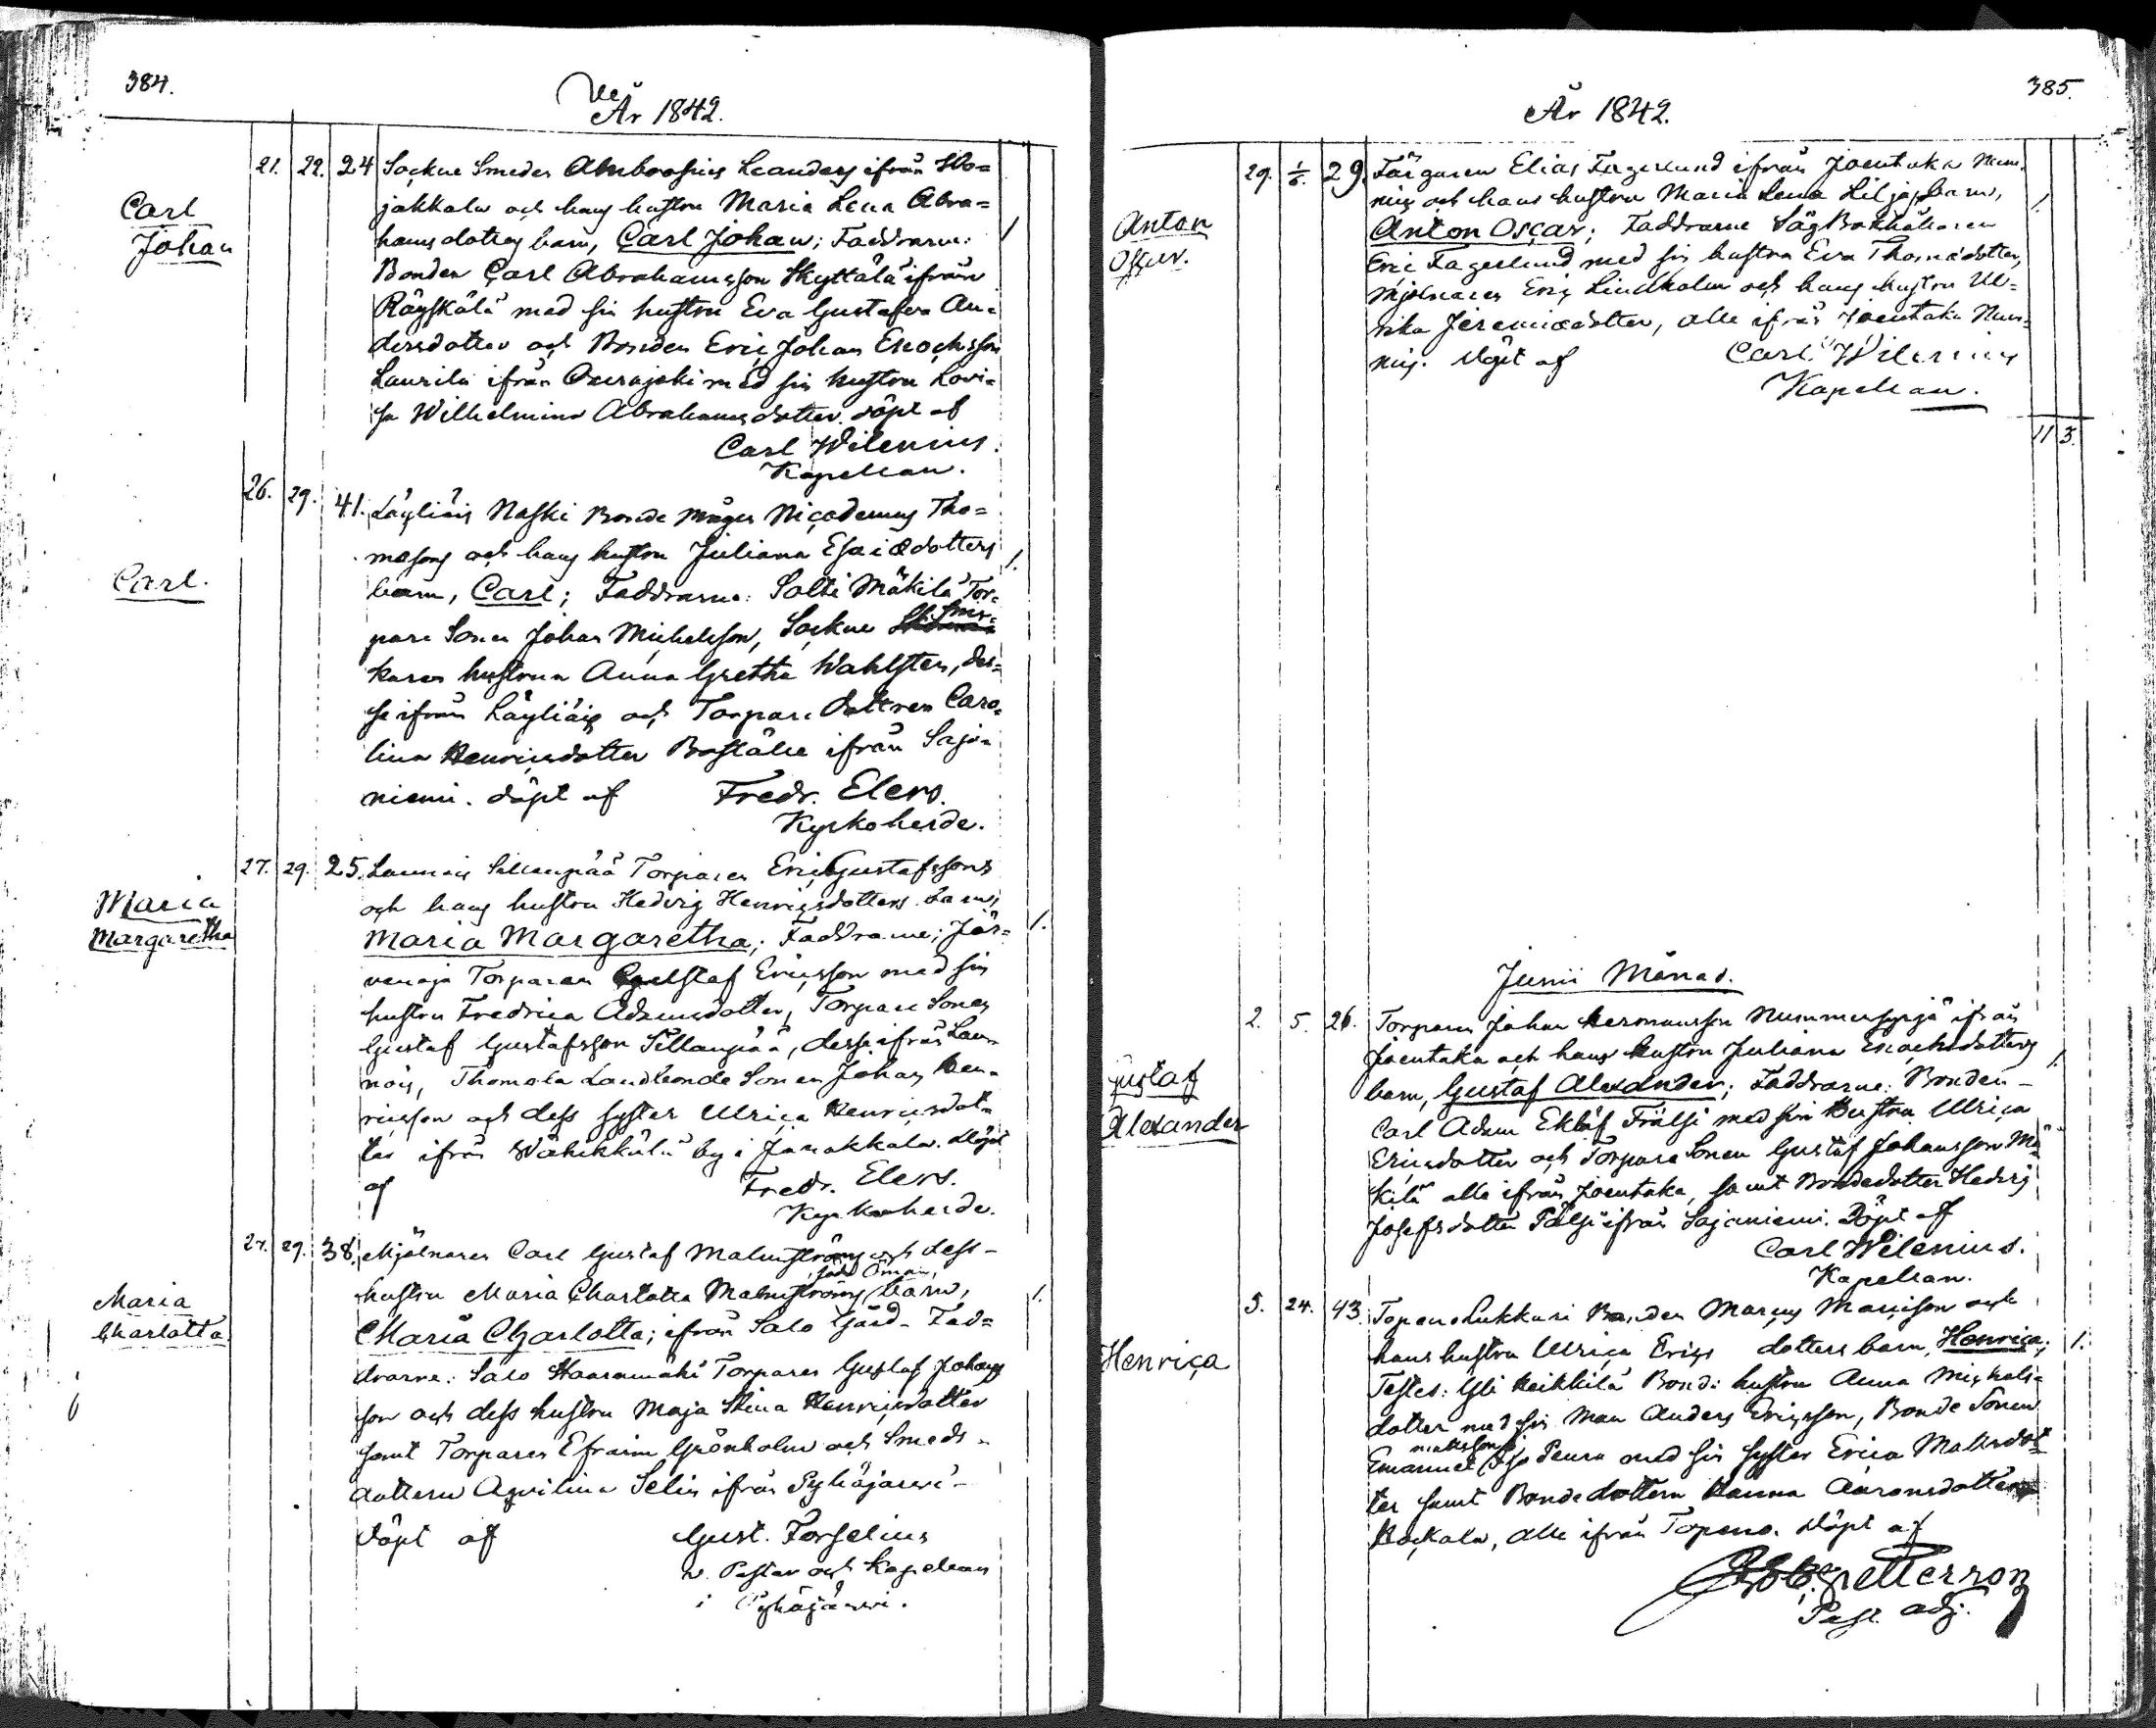 384.
År 1842.
Carl
Johan
21. 22. 24 Sockne Smeden Ambrosius Leanders ifrån Wo=
jakkala och hans hustru Maria Lena Abra=
hamsdotters barn, Carl Johan; Faddrarne: 1
Bonden Carl Abrahamsson Skyttälä ifrån
Räyskälä med sin hustru Eva Gustafva An=
dersdotter och Bonden Eric Johan Enochsson
Laurila ifrån Ourajoki med sin hustru Lovi=
sa Wilhelmina Abrahamsdotter. döpt af
Carl Wilenius.
Kapellan.
Carl.
26. 29. 41. Läyliäis Naski Bonde mågen Nicodemus Tho=
masons och hans hustru Juliana Esaiædotters 1.
barn, Carl; Faddrarne: Salti Mäkilä Tor=
pare Sonen Johan Michelsson, Sockne
karen hustrun Anna Gretha Wahlsten, des=
se ifrån Läyliäis och Torpare dottren Caro=
lina Henricsdotter Boställe ifrån Saja=
niemi. döpt af Fredr. Elers.
Kyrkoherde.
Maria
Margaretha
27. 29. 25. Launois Sillanpää Torparen Eric Gustafssons
och hans hustru Hedvig Henricsdotters barn,
Maria Margaretha; Faddrarne; Jär= 1.
venoja Torparen Gustaf Ericsson med sin
hustru Fredrica Adamsdotter, Torpare Sonen
Gustaf Gustafsson Sillanpää, desse ifrån Lau=
nois, Thomola Landbonde Sonen Johan Hen=
ricsson och dess syster Ulrica Henricsdot=
ter ifrån Wähikkälä by i Janakkala. döpt
af Fredr. Elers.
Kyrkoherde.
Maria
Charlotta
27. 29. 38. Mjölnaren Carl Gustaf Malmströms och dess
född Öman,
hustru Maria Charlotta Malmströms barn, 1.
Maria Charlotta; ifrån Salo Gård. Fad=
drarne: Salo Haaramäki Torparen Gustaf Johans
son och dess hustru Maja Stina Henricsdotter
samt Torparen Efraim Grönholm och Smeds
dottern Aqvilina Selin ifrån Pyhäjärvi
döpt af Gust. Forselius
v. Pastor och Kapellan
i Pyhäjärvi.
385.
År 1842.
Anton
Oscar.
29. 1/6. 29. Färgaren Elias Fagerlund ifrån Joentaka Num=
mis och hans hustru Maria Lena Liljas barn, 1.
Anton Oscar; Faddrarne Såg Bokhållaren
Eric Fagerlund med sin hustru Eva Thomædotter,
Mjölnaren Eric Lindholm och hans hustru Ul=
rika Jeremiædotter, alle ifrån Joentaka Num=
mis. döpt af Carl Wilenius
Kapellan.
11 3.
Junii Månad.
Gustaf
Alexander
2. 5. 26. Torparen Johan Hermansson Nummensyrjä ifrån
Joentaka och hans hustru Juliana Enochsdotters
barn, Gustaf Alexander; Faddrarne: Bonden 1.
Carl Adam Eklöf Frälsi med sin Hustru Ulrica
Ericsdotter och Torpare Sonen Gustaf Johansson Mä=
kilä alle ifrån Joentaka, samt Bondedotter Hedvig
Josefsdotter Pälsi ifrån Sajaniemi. Döpt af
Carl Wilenius.
Kapellan.
Henrica
5. 24. 43. Topeno Lukkari Bonden Marcus Marcison och
hans hustru Ulrica Erics dotters barn, Henrica; 1.
Testes: Yli Heikkilä Bonde hustru Anna Michels=
dotter med sin Man Anders Ericsson, Bonde Sonen
mattsson
Emanuel Peura med sin syster Erica Mattsdot=
ter samt Bonde dottern Hanna Aaronsdotter
Kockala, alle ifrån Topeno. döpt af
Petterson
Past. adj.